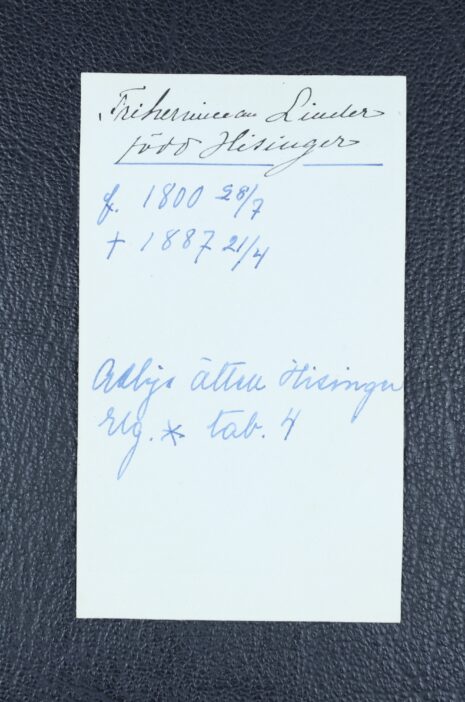 Friherinnean Linder
född Hisinger
f. 1800 28/7
† 1887 21/4
Adlig ätten Hisinger
Elg. * tab. 4